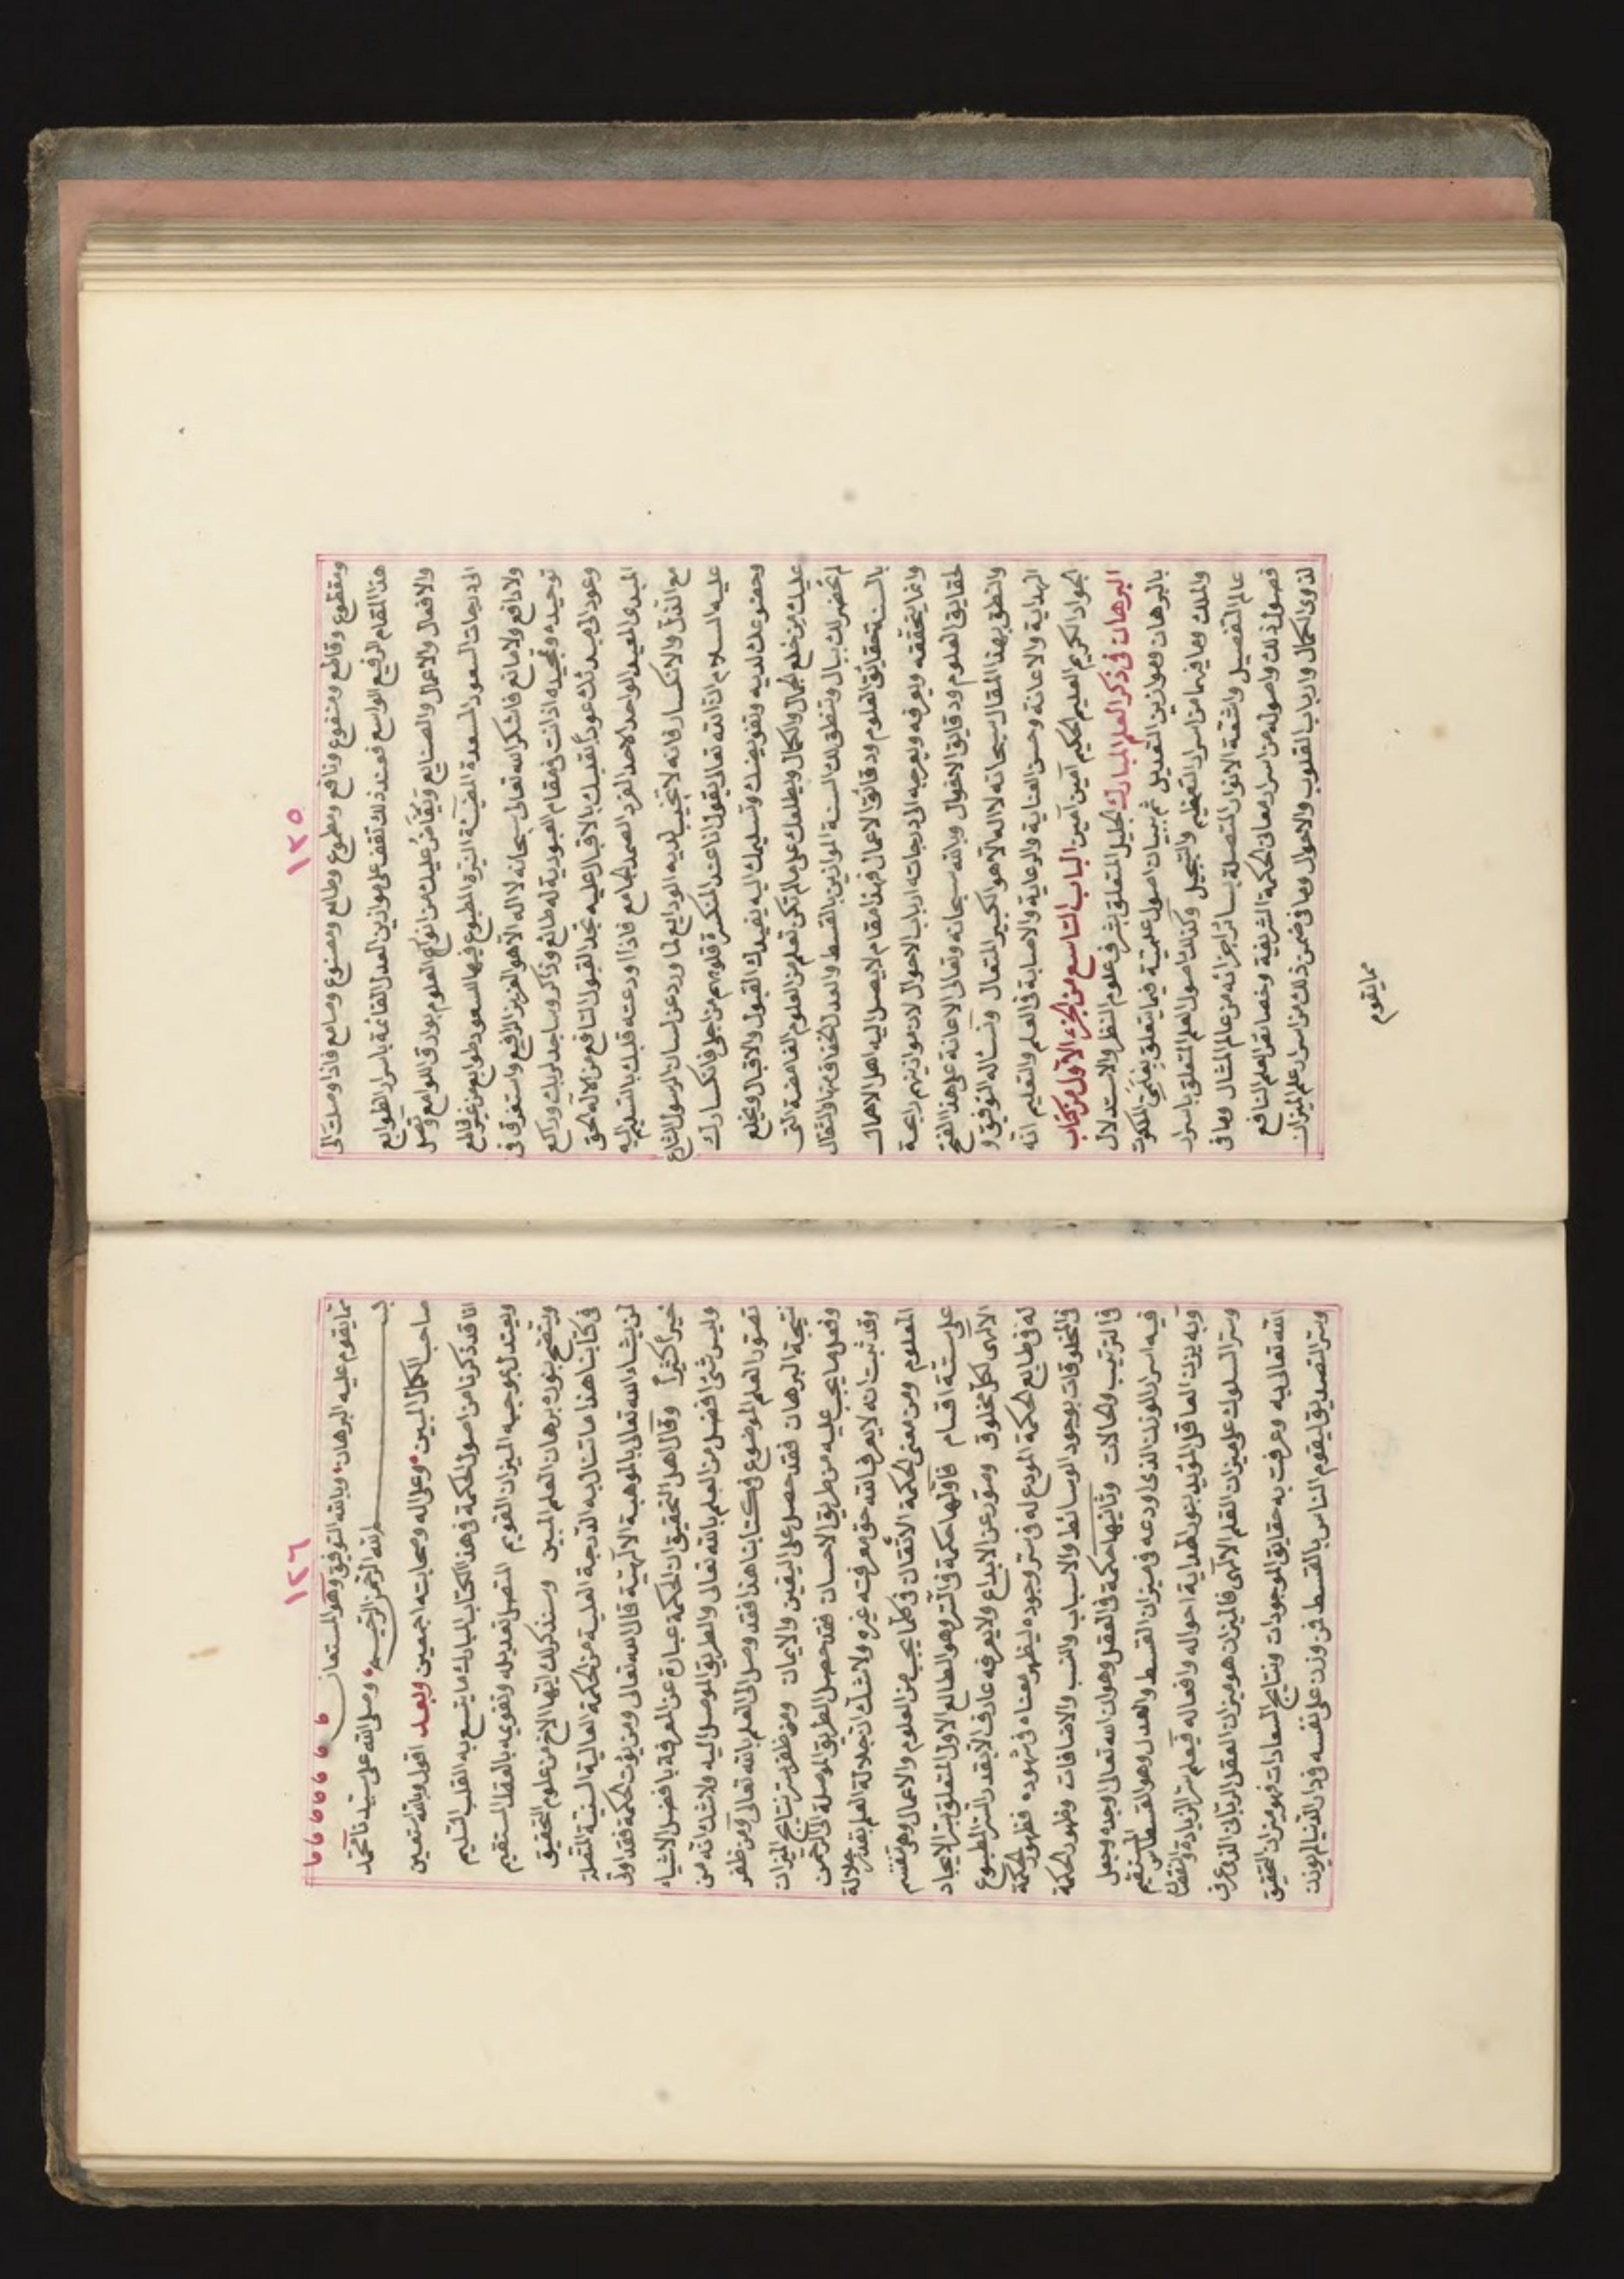 ١٢٥
ومقطوع وقاطع ومنفوع ونافع ومطبوع وطابع ومصنوع وصانع فاذا وصلت الى
هذا المقام الرفيع الواسع فعند ذلك تقف على موازين العدل القائمة باسرار الطوابع
والافعال والاعمال والصنايع وتفاض عليك من انواع العلوم بوارق اللوامع وتصل
الى درجات السعود المسعدة المضيئة النيرة المطبوع فيها السعود طوابع من غير قاطع
ولا دافع ولا مانع فاشكر الله تعالى سبحانه لا اله الا هو العزيز الرفيع واستغرق في
توحيده وتمجيده اذ انت في مقام العبودية له طائع وذاكر وساجد لربك وراكع
وعود الى مبدئك عوداً تقديك بالاقبال عليه تجد القبول النافع من الاله الحق
المبدى المعيد الواحد الاحد الفرد الصمد الجامع فاذا اودعته قلبك بالتسليم اليه
مع الذل والانكسار فانه لا تخيب لديه الودايع لما ورد عن لسان الرسول الشارع
عليه السلام اذ الله تعالى يقول انا عند المنكسرة قلوبهم من اجلى فانكسارك
وخضوعك لديه وتفويضك وتسليمك اليه يفيدك القبول والاقبال ويخلع
عليك من خلع الجمال والكمال ويطلعك على مالم تكن تعلم من العلوم الغامضة التى
لم تخطر لك ببال وتنطق لك السنة الموازين بالقسط والعدل الخفاف منها والثقال
بالسنة حقايق العلوم ودقائق الاعمال فهذا مقام لا يصل اليه اهل الاهمال
وانما يتحققه ويعرفه ويعرج به الى درجاته ارباب الاحوال لان موازينهم راجحة
لحقايق العلوم ودقايق الاقوال وبالله سبحانه وتعالى الاعانة على هذا الفتح
والنطق بهذا المقال سبحانه لا اله الا هو الكبير المتعال ونسأله التوفيق و
الهداية والاعانة وحسن العناية والرعاية والاصابة في العلم والتعليم انه
الجواد الكريم العليم الحكيم آمين آمين الباب التاسع من الجزء الاول من كتاب
البرهان فى ذكر العلم المبارك الجليل المتعلق بشرف علوم النظر والاستدلال
بالبرهان وموازين التعديل ثم بيان اصول علمية فيما يتعلق بعلمى الملكوت
والملك وما فيهما من اسرار التعظيم والتبجيل وكذلك اصول العلم المتعلق باسرار
عالم التفصيل واشعة الانوار المتصلة بسائر اجزائه من عالم المثال وما فى
فصول ذلك واصوله من اسرار معانى الحكمة الشريفة وخصائص العلم النافع
لذوى الكمال وارباب القلوب والاحوال وما فى ضمن ذلك من اسرار علم الميزان
مما يقوم
١٢٦
مما يقوم عليه البرهان وبالله التوفيق وهو المستعان
بسم الله الرحمن الرحيم وصلى الله على سيدنا محمد
صاحب الكمال المبين وعلى اله وصحابته اجمعين وبعد اقول وبالله استعين
انا قد ذكرنا من اصول الحكمة فى هذا الكتاب المبارك ما يتسع به القلب السليم
ويعتدل بموجبه الميزان القويم المتصل تعديله وتقويمه بالعقل المستقيم
ويتضح بنوره برهان العلم المبين وسنذكر لك ايها الاخ من علوم التحقيق
فى كتابنا هذا ما تنال به الدرجة العلية من الحكمة العالية السنية المتصلة
لمن يشاء الله تعالى بالموهبة الالهية قال الله تعالى ومن يؤت الحكمة فقد اوتى
خيراً كثيراً وقال اهل التحقيق ان الحكمة عبارة عن المعرفة بافضل الاشياء
وليس شئ افضل من العلم بالله تعالى والطريق الموصل اليه ولا شك انه من
تصور العلم الموضوع فى كتابنا هذا فقد وصل الى العلم بالله تعالى ومن ظفر
نتيجة البرهان فقد حصل على اليقين والايمان ومن ظفر بسر نتايج الميزان
وفعل ما يجب عليه من طريق الاحسان فقد حصل الطريق الموصلة الى الرحمن
وقد ثبت انه لا يعرف الله حق معرفته غيره ولا شك ان جلالة العلم بقدر جلالة
المعلوم ومن معنى الحكمة الاتقان فى كلما يجب من العلوم والاعمال وهى تنقسم
على ستة اقسام فاولها حكمة فى السر وهو الطالع الاول المتعلق بسر الايجاد
الالهى لكل مخلوق ومتودع عن الابداع ولا يعرفه عارف الا بقدر السر المطبوع
له فى طابع الحكمة المودع له فى سر وجوده ليظهر معناه فى شهوده فظهور الحكمة
فى المخلوقات بوجود الوسائط والاسباب والنسب والاضافات وظهور الحكمة
فى الترتيب والحالات وثانيها حكمة فى العقل وهو ان الله تعالى اوجده وجعل
فيه اسرار الوزن الذى اودعه فى ميزان القسط والعدل وهو القسطاس المستقيم
وبه يزن العاقل المؤيد بعون الهداية احواله وافعاله فيعلم سر الزيادة والنقصان
وسر السلوك على ميزان القلم الالهى فالميزان هو ميزان العقل الربانى الذى عرف
الله تعالى به وعرفت به حقايق الموجودات ونتايج السعادات فهو ميزان التحقيق
وسر التصديق ليقوم الناس بالقسط فمن وزن على نفسه فى دار الدنيا لم يوزن